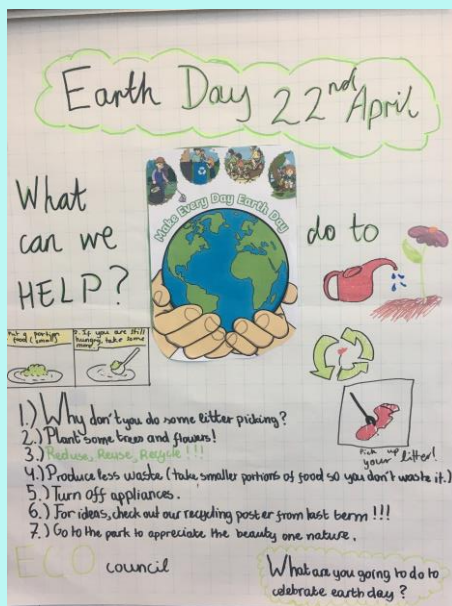 Earth Day 22nd April
What
can we
HELP?
Make Every Day Earth Day
do to
Put a portion
food (small)
2. If you are still
hungry, take some
more
Pick up
your litter!
1.) Why don't you do some litter picking?
2.) Plant some trees and flowers!
3.) Reduse, Reuse, Recycle!!!
4.) Produce less waste (take smaller portions of food so you don't waste it.)
5.) Turn off appliances.
6.) For ideas, check out our recycling poster from last term!!!
7.) Go to the park to appreciate the beauty one nature.
ECO council
What are you going to do to
celebrate earth day?